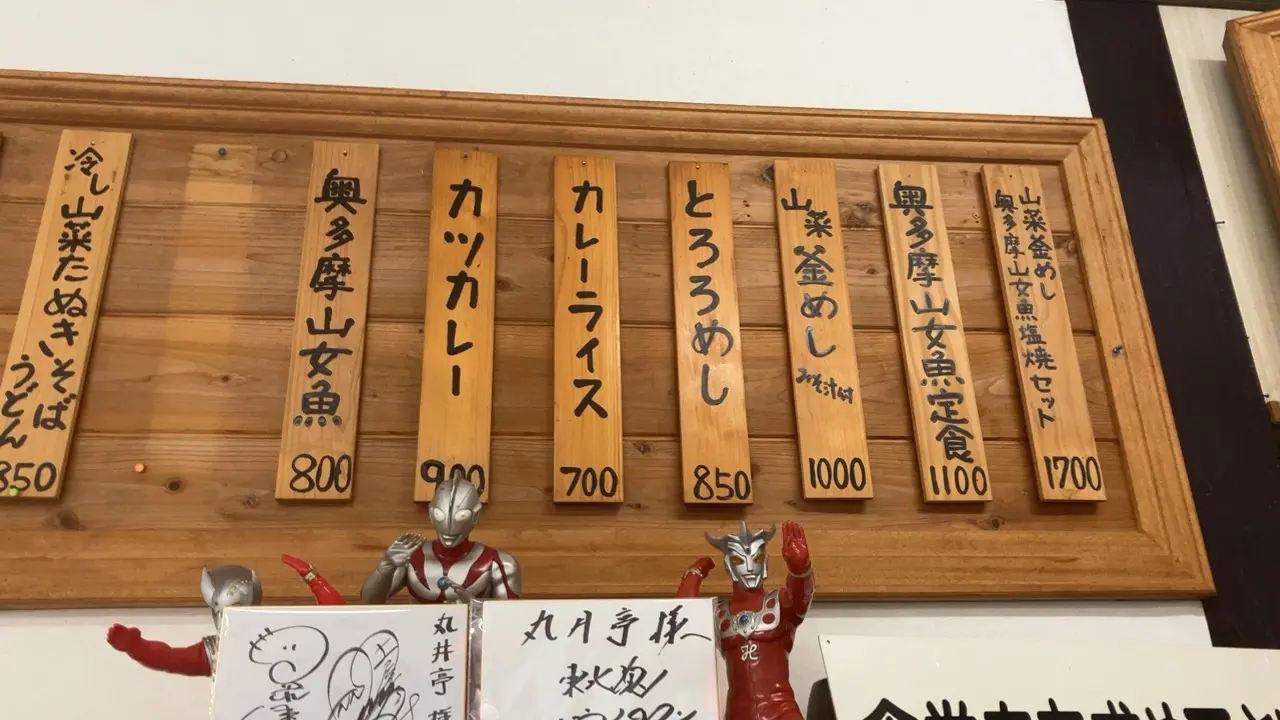 山菜釜めし
奥多摩山女魚塩焼セット
1700
奥多摩山女魚定食
1100
山菜釜めし
みそ汁付
1000
とろろめし
850
カレーライス
700
カツカレー
900
奥多摩山女魚
800
冷し山菜たぬきそば
うどん
850
丸井亭様
丸井亭様